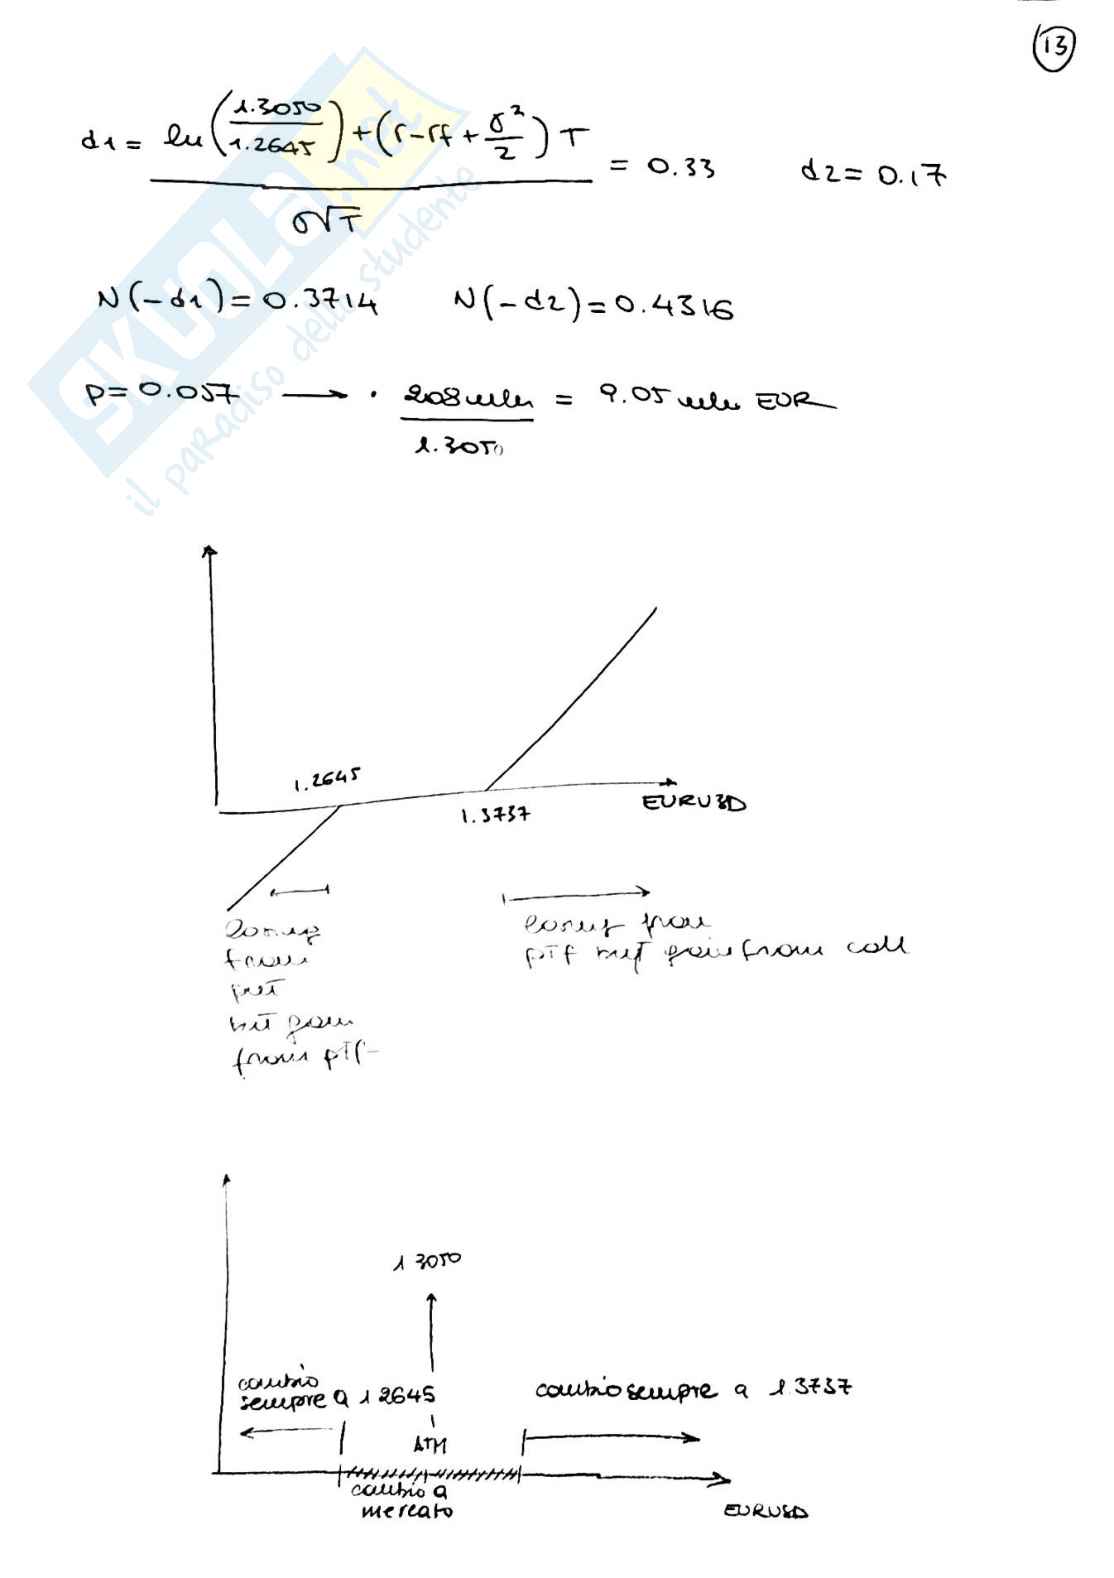 13
d1 = ln(1.3050/1.2645) + (r-rf + σ²/2) T / σ√T = 0.33 d2 = 0.17
N(-d1) = 0.3714 N(-d2) = 0.4316
P = 0.057 → · 208 mln / 1.3050 = 9.05 mln EUR
1.2645
1.3737
EURUSD
losing
from
put
but gain
from ptf
losing from
ptf but gain from call
1.3050
cambio
sempre a 1.2645
cambio sempre a 1.3737
ATM
cambio a
mercato
EURUSD
SKUOLA.net
il paradiso dello studente